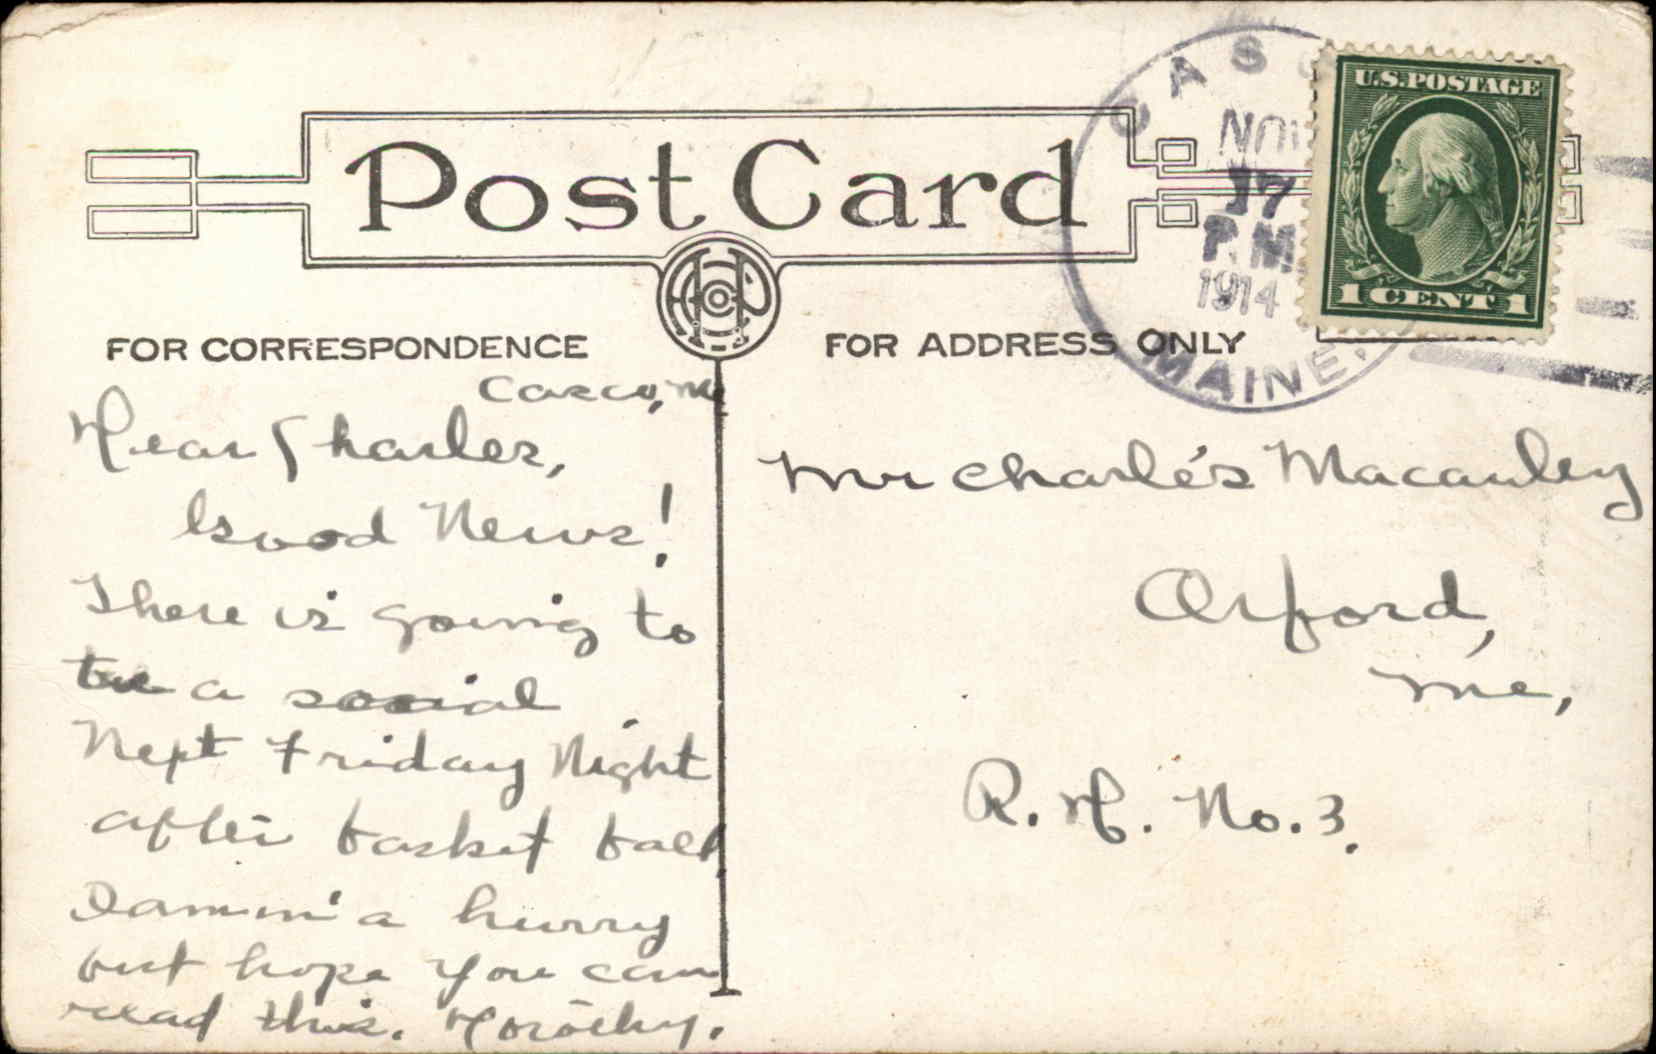 CASC
NOV
17
P.M.
1914
MAINE.
U.S. POSTAGE
1 CENT 1
Post Card
FOR CORRESPONDENCE
Casco, Me
Dear Charles,
Good News!
There is going to
be a social
Next Friday Night
after basket ball
I am in a hurry
but hope you can
read this. Dorothy.
FOR ADDRESS ONLY
Mr Charles Macauley
Oxford,
Me,
R. D. No. 3.